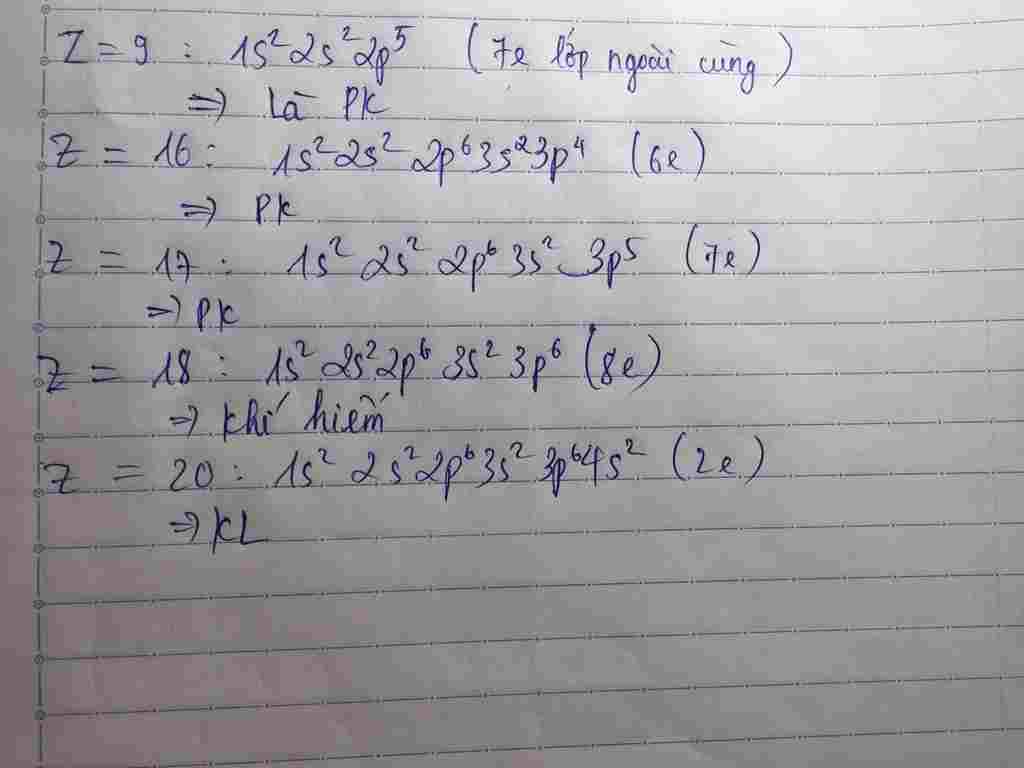 Z = 9 : 1s² 2s² 2p⁵ (7e lớp ngoài cùng)
=> Là PK
Z = 16 : 1s² 2s² 2p⁶ 3s² 3p⁴ (6e)
=> PK
Z = 17 : 1s² 2s² 2p⁶ 3s² 3p⁵ (7e)
=> PK
Z = 18 : 1s² 2s² 2p⁶ 3s² 3p⁶ (8e)
=> Khí hiếm
Z = 20 : 1s² 2s² 2p⁶ 3s² 3p⁶ 4s² (2e)
=> KL